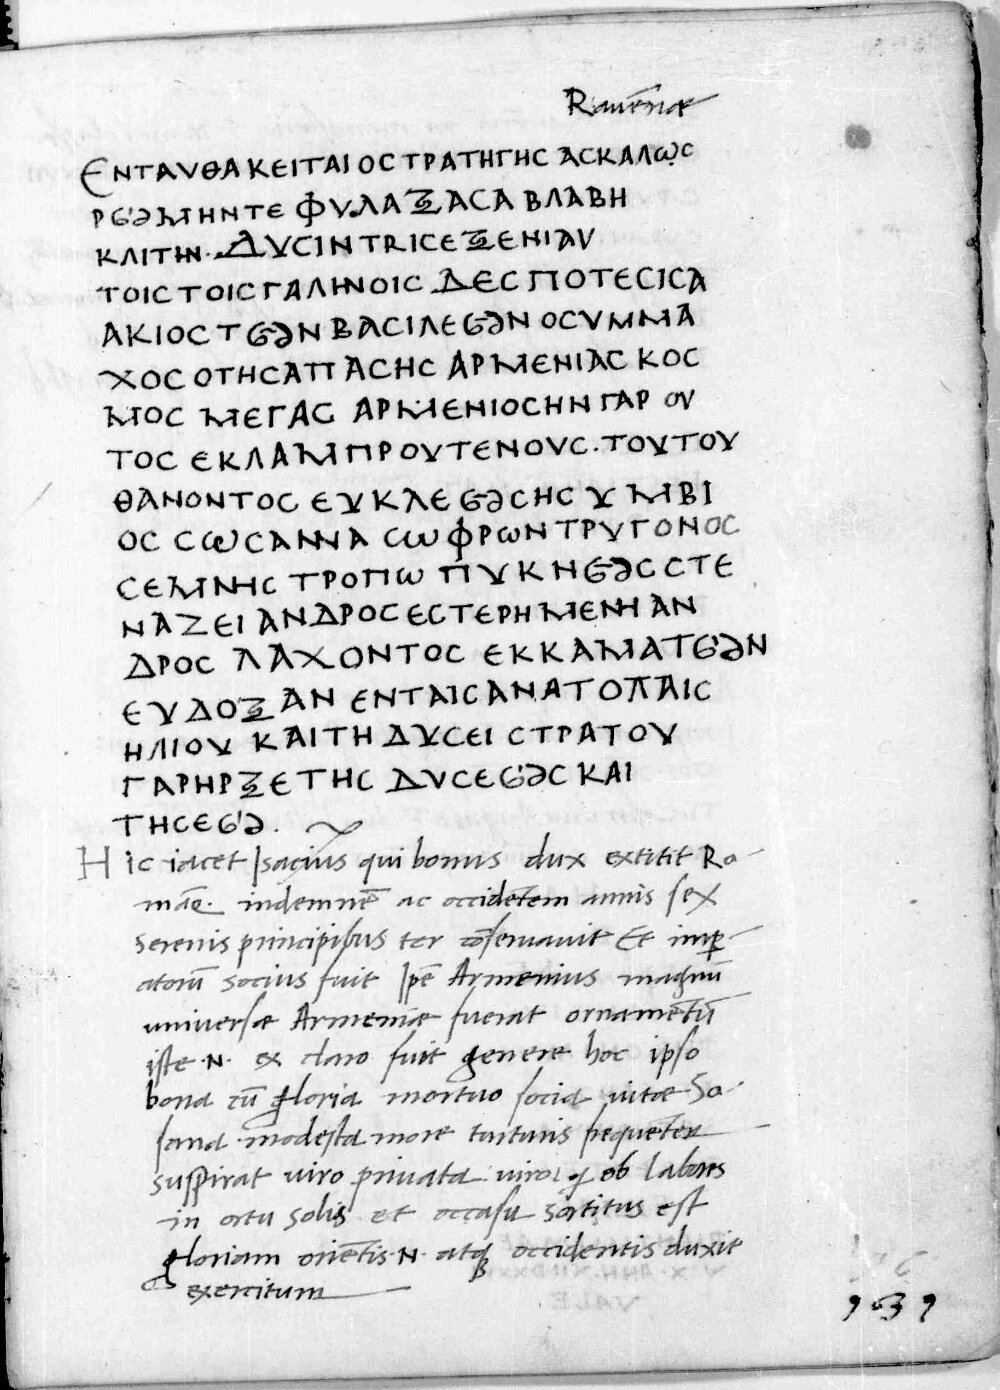 Rauēnæ
ΕΝΤΑΥΘΑ ΚΕΙΤΑΙ ΟCΤΡΑΤΗΓΗC ΑCΚΑΛΩC
ΡΩΜΗΝΤΕ ΦΥΛΑΞΑCΑ ΒΛΑΒΗ
ΚΛΙΤΗΝ· ΔΥCΙΝ ΤRΙCΕΞΕΝΙΑΥ
ΤΟΙC ΤΟΙCΓΑΛΗΝΟΙC ΔΕCΠΟΤΕCΙCΑ
ΑΚΙΟC ΤΩΝ ΒΑCΙΛΕΩΝ ΟCΥΜΜΑ
ΧΟC ΟΤΗCΑΠΑCΗC ΑΡΜΕΝΙΑC ΚΟC
ΜΟC ΜΕΓΑC ΑΡΜΕΝΙΟCΗΝ ΓΑΡ ΟΥ
ΤΟC ΕΚΛΑΜΠΡΟΥΤΕΝΟΥC· ΤΟΥΤΟΥ
ΘΑΝΟΝΤΟC ΕΥΚΛΕΩCΗC ΥΜΒΙ
ΟC CΩCΑΝΝΑ CΩΦΡΩΝ ΤΡΥΓΟΝΟC
CΕΜΝΗC ΤΡΟΠΩ ΠΥΚΗΩC CΤΕ
ΝΑΖΕΙ ΑΝΔΡΟC ΕCΤΕΡΗΜΕΝΗ ΑΝ
ΔΡΟC ΛΑΧΟΝΤΟC ΕΚΚΑΜΑΤΩΝ
ΕΥΔΟΞΑΝ ΕΝΤΑΙC ΑΝΑΤΟΛΑΙC
ΗΛΙΟΥ ΚΑΙ ΤΗ ΔΥCΕΙ CΤΡΑΤΟΥ
ΓΑΡΗΡΞΕ ΤΗC ΔΥCΕΩC ΚΑΙ
ΤΗCΕΩ.
Hic iacet Isacius qui bonus dux extitit Ro-
māe. indemnē ac occidētem annis sex
serenis principibus ter cōservavit Et imper-
atorū socius fuit Ipē Armenius magnū
universæ Armeniæ fuerat ornamētū
iste ·N· ex claro fuit genere hoc ipso
bona cū gloria mortuo socia vitæ So-
sana modesta more turturis frequēter
suspirat viro privata viro q ob labores
in ortu solis et occasu sortitus est
gloriam oriētis ·N· atq occidentis duxit
exercitum
939